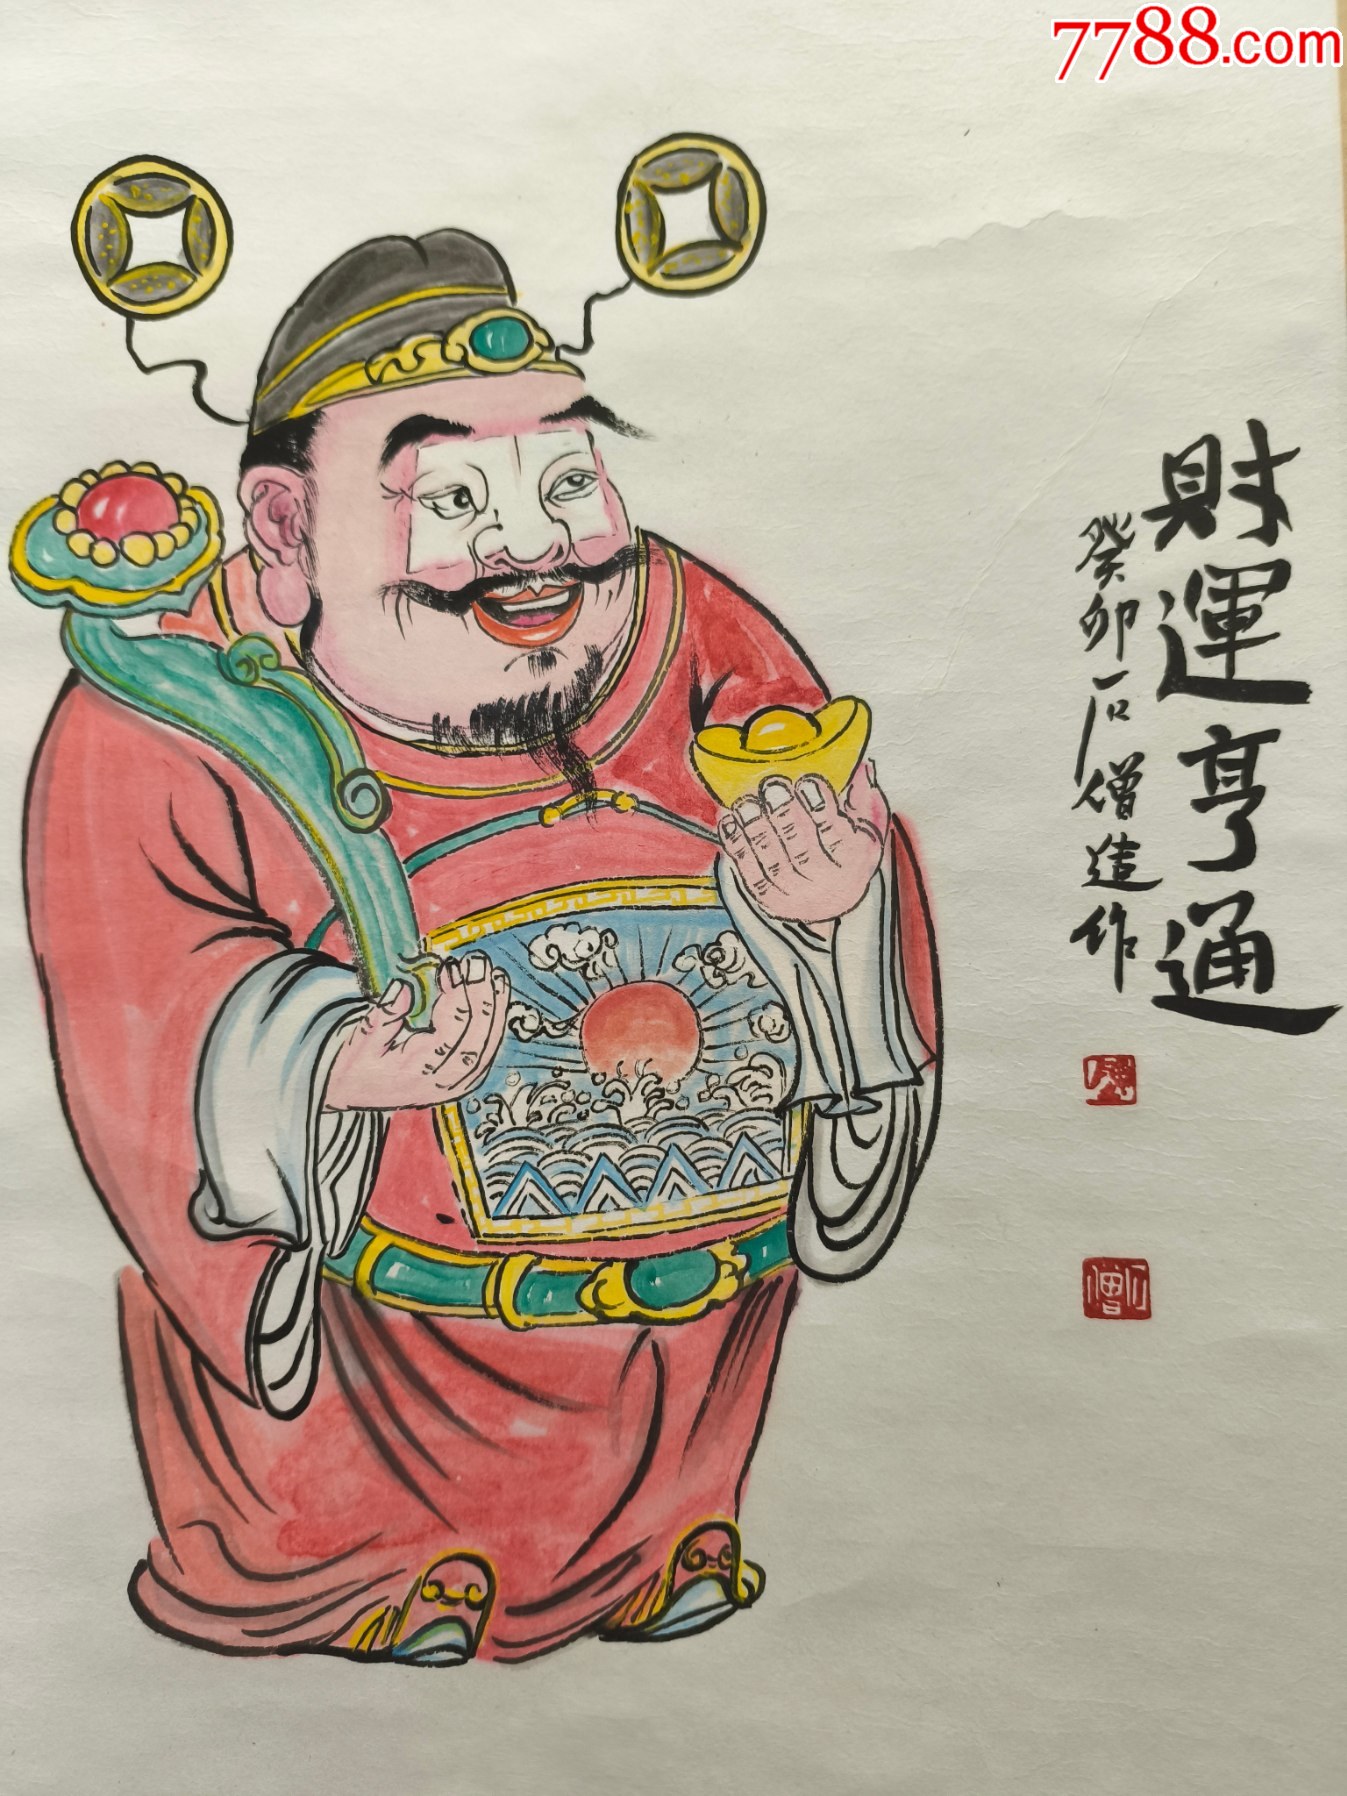 7788.com
財運亨通
癸卯石僧造作